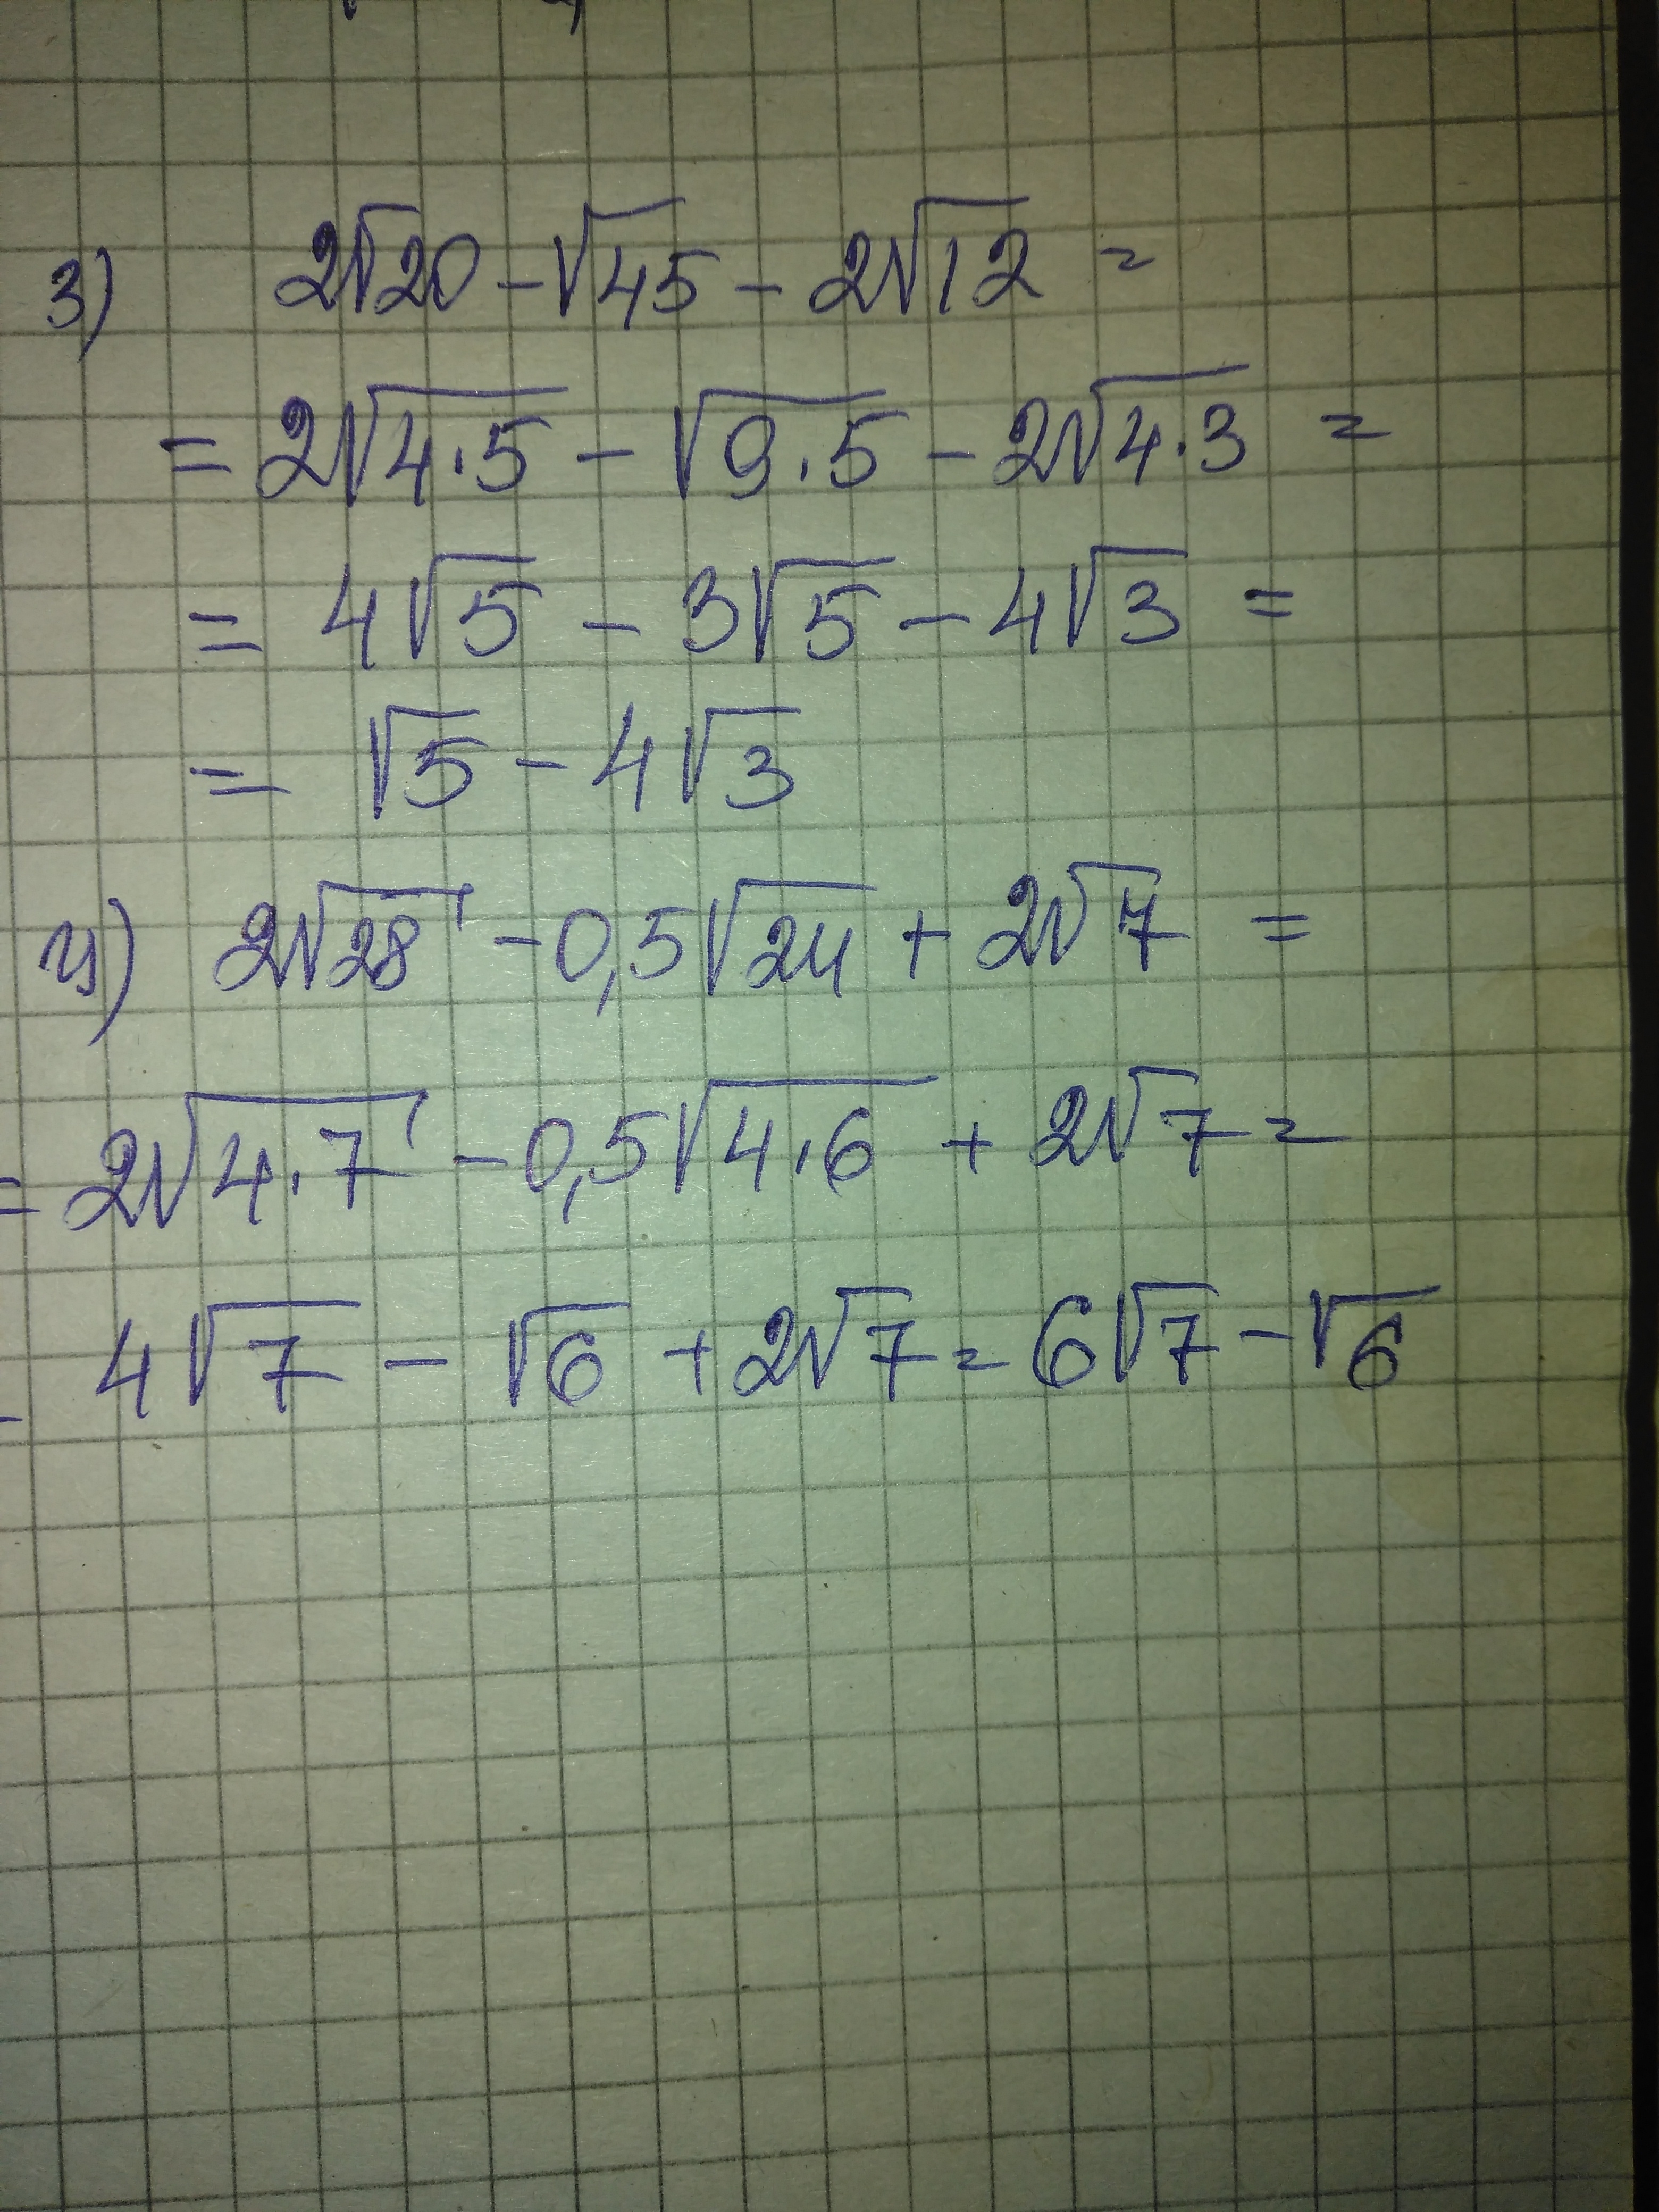 3) 2√20 - √45 - 2√12 =
= 2√4·5 - √9·5 - 2√4·3 =
= 4√5 - 3√5 - 4√3 =
= √5 - 4√3
4) 2√28 - 0,5√24 + 2√7 =
= 2√4·7 - 0,5√4·6 + 2√7 =
= 4√7 - √6 + 2√7 = 6√7 - √6